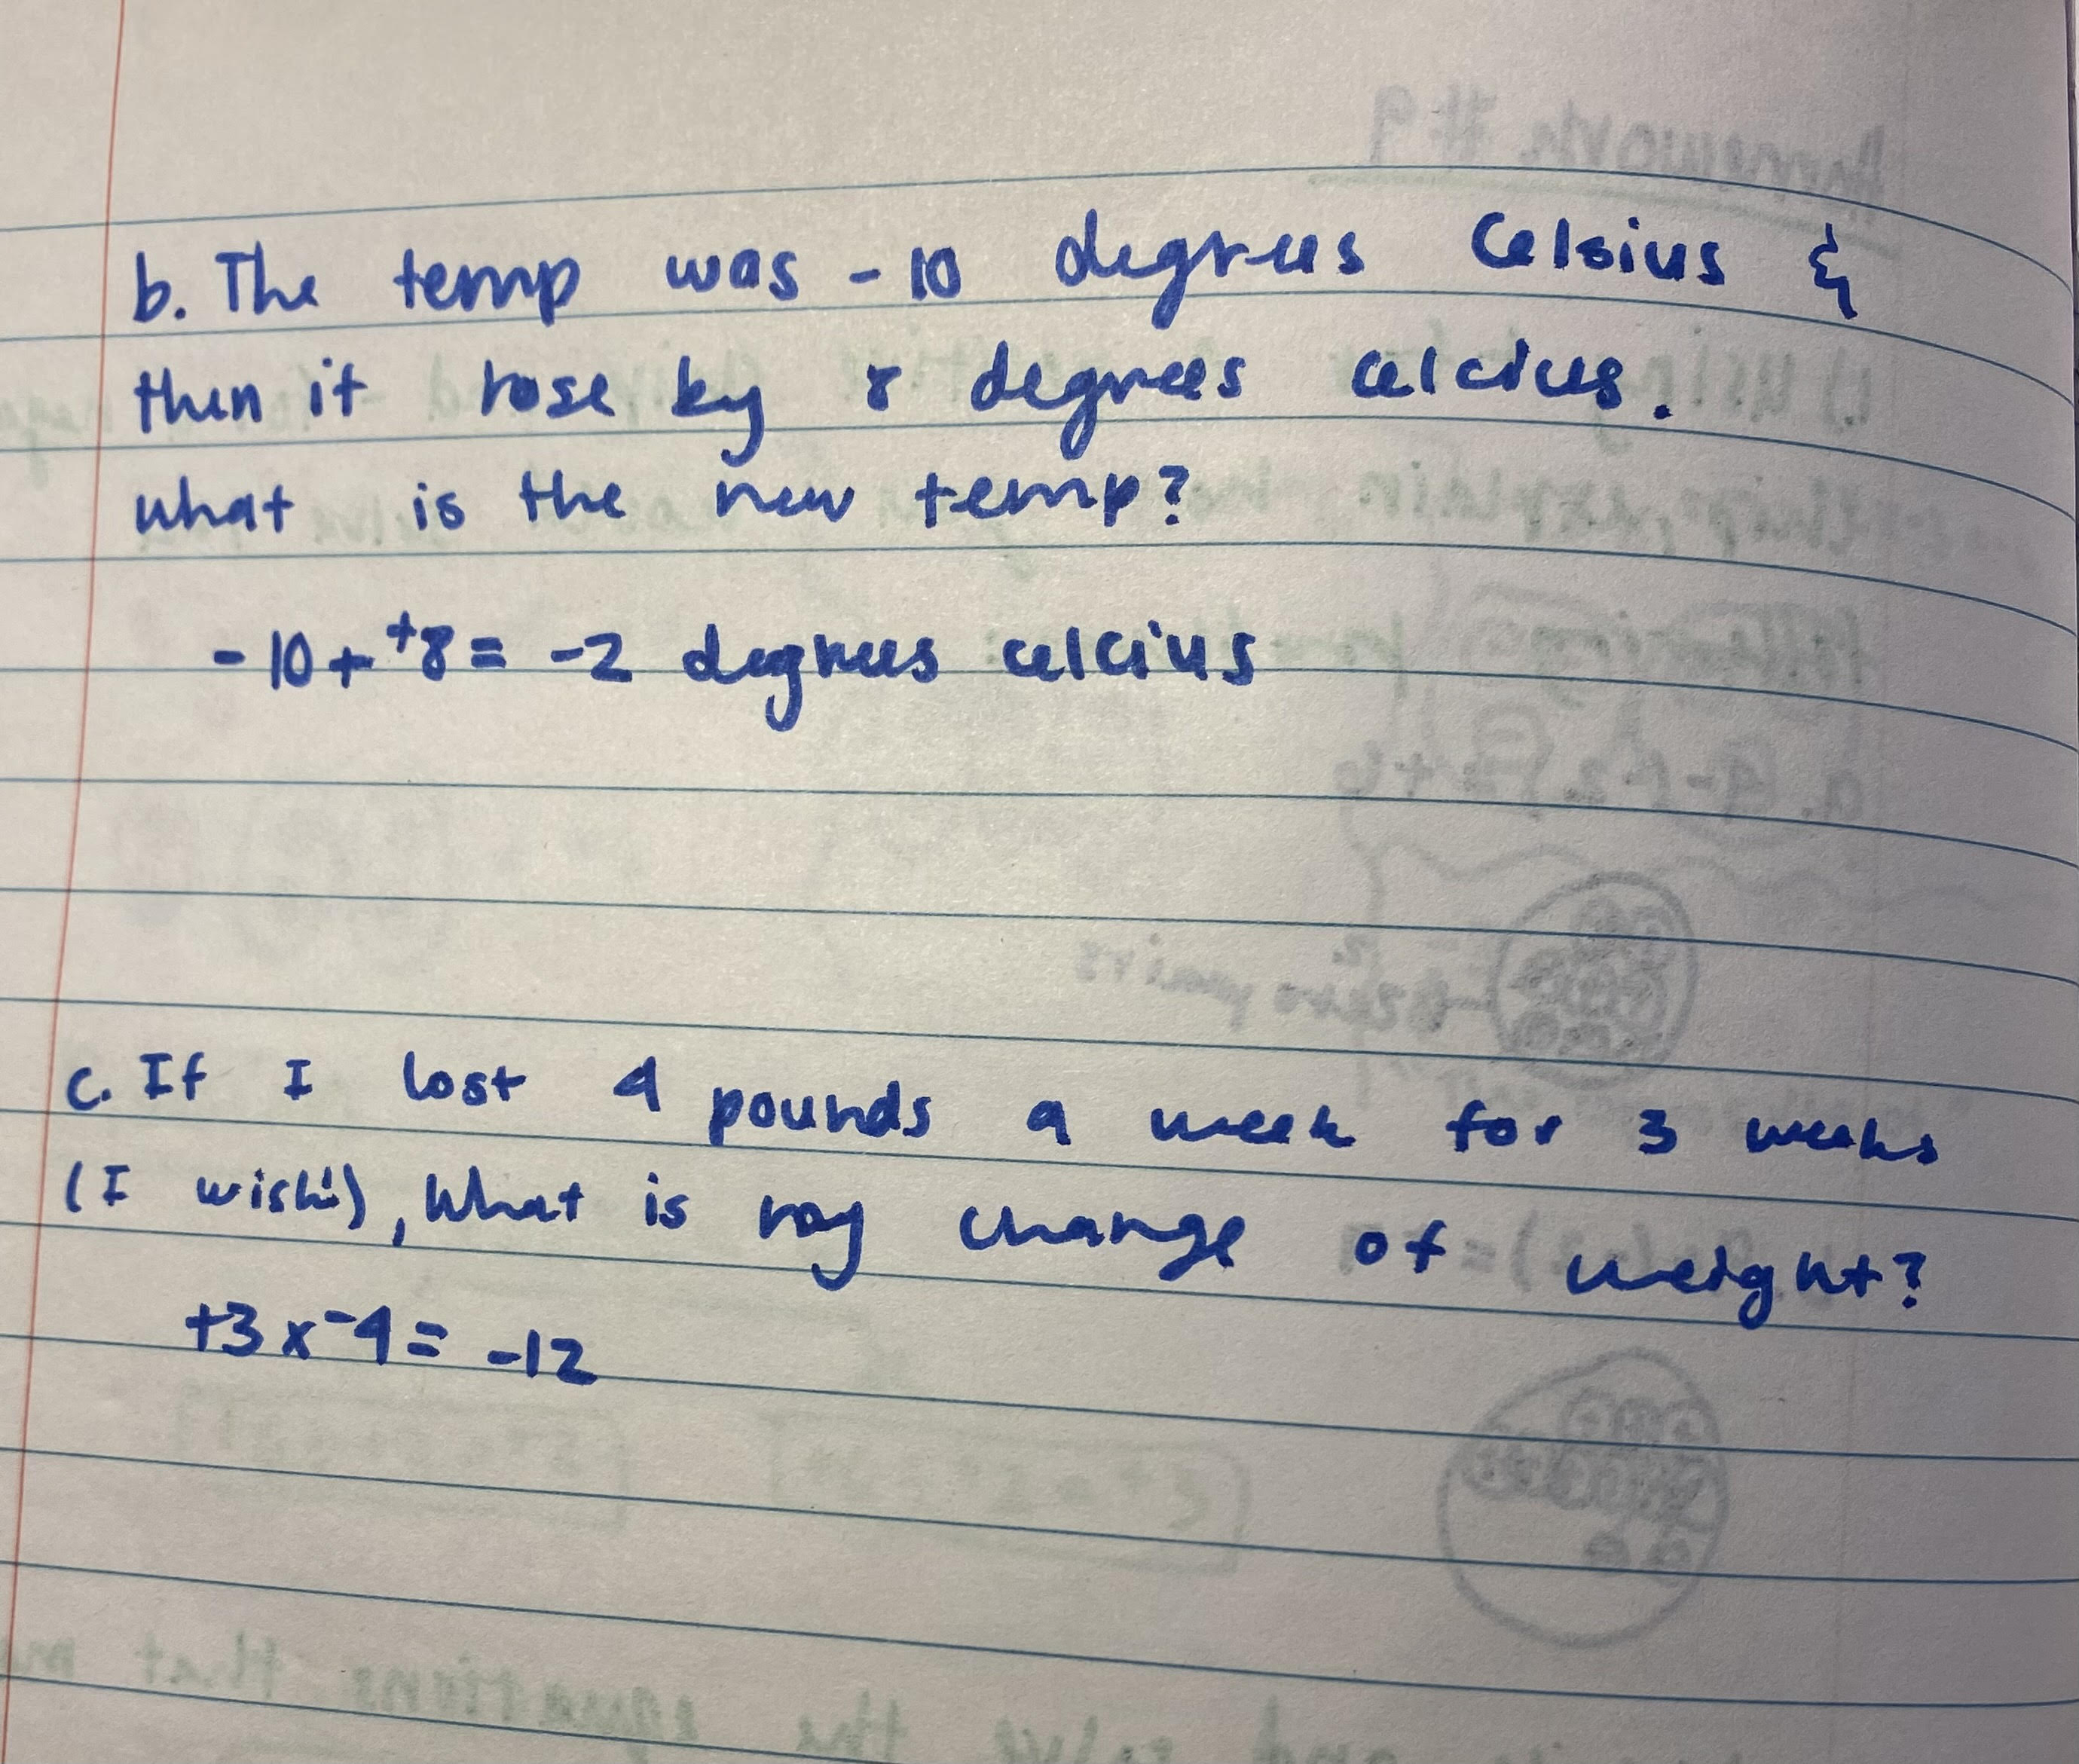 b. The temp was -10 degrees Celsius &
then it rose by 8 degrees celcius.
what is the new temp?
-10 + +8 = -2 degrees celcius
c. If I lost 4 pounds a week for 3 weeks
(I wish!), What is my change of weight?
+3 x -4 = -12